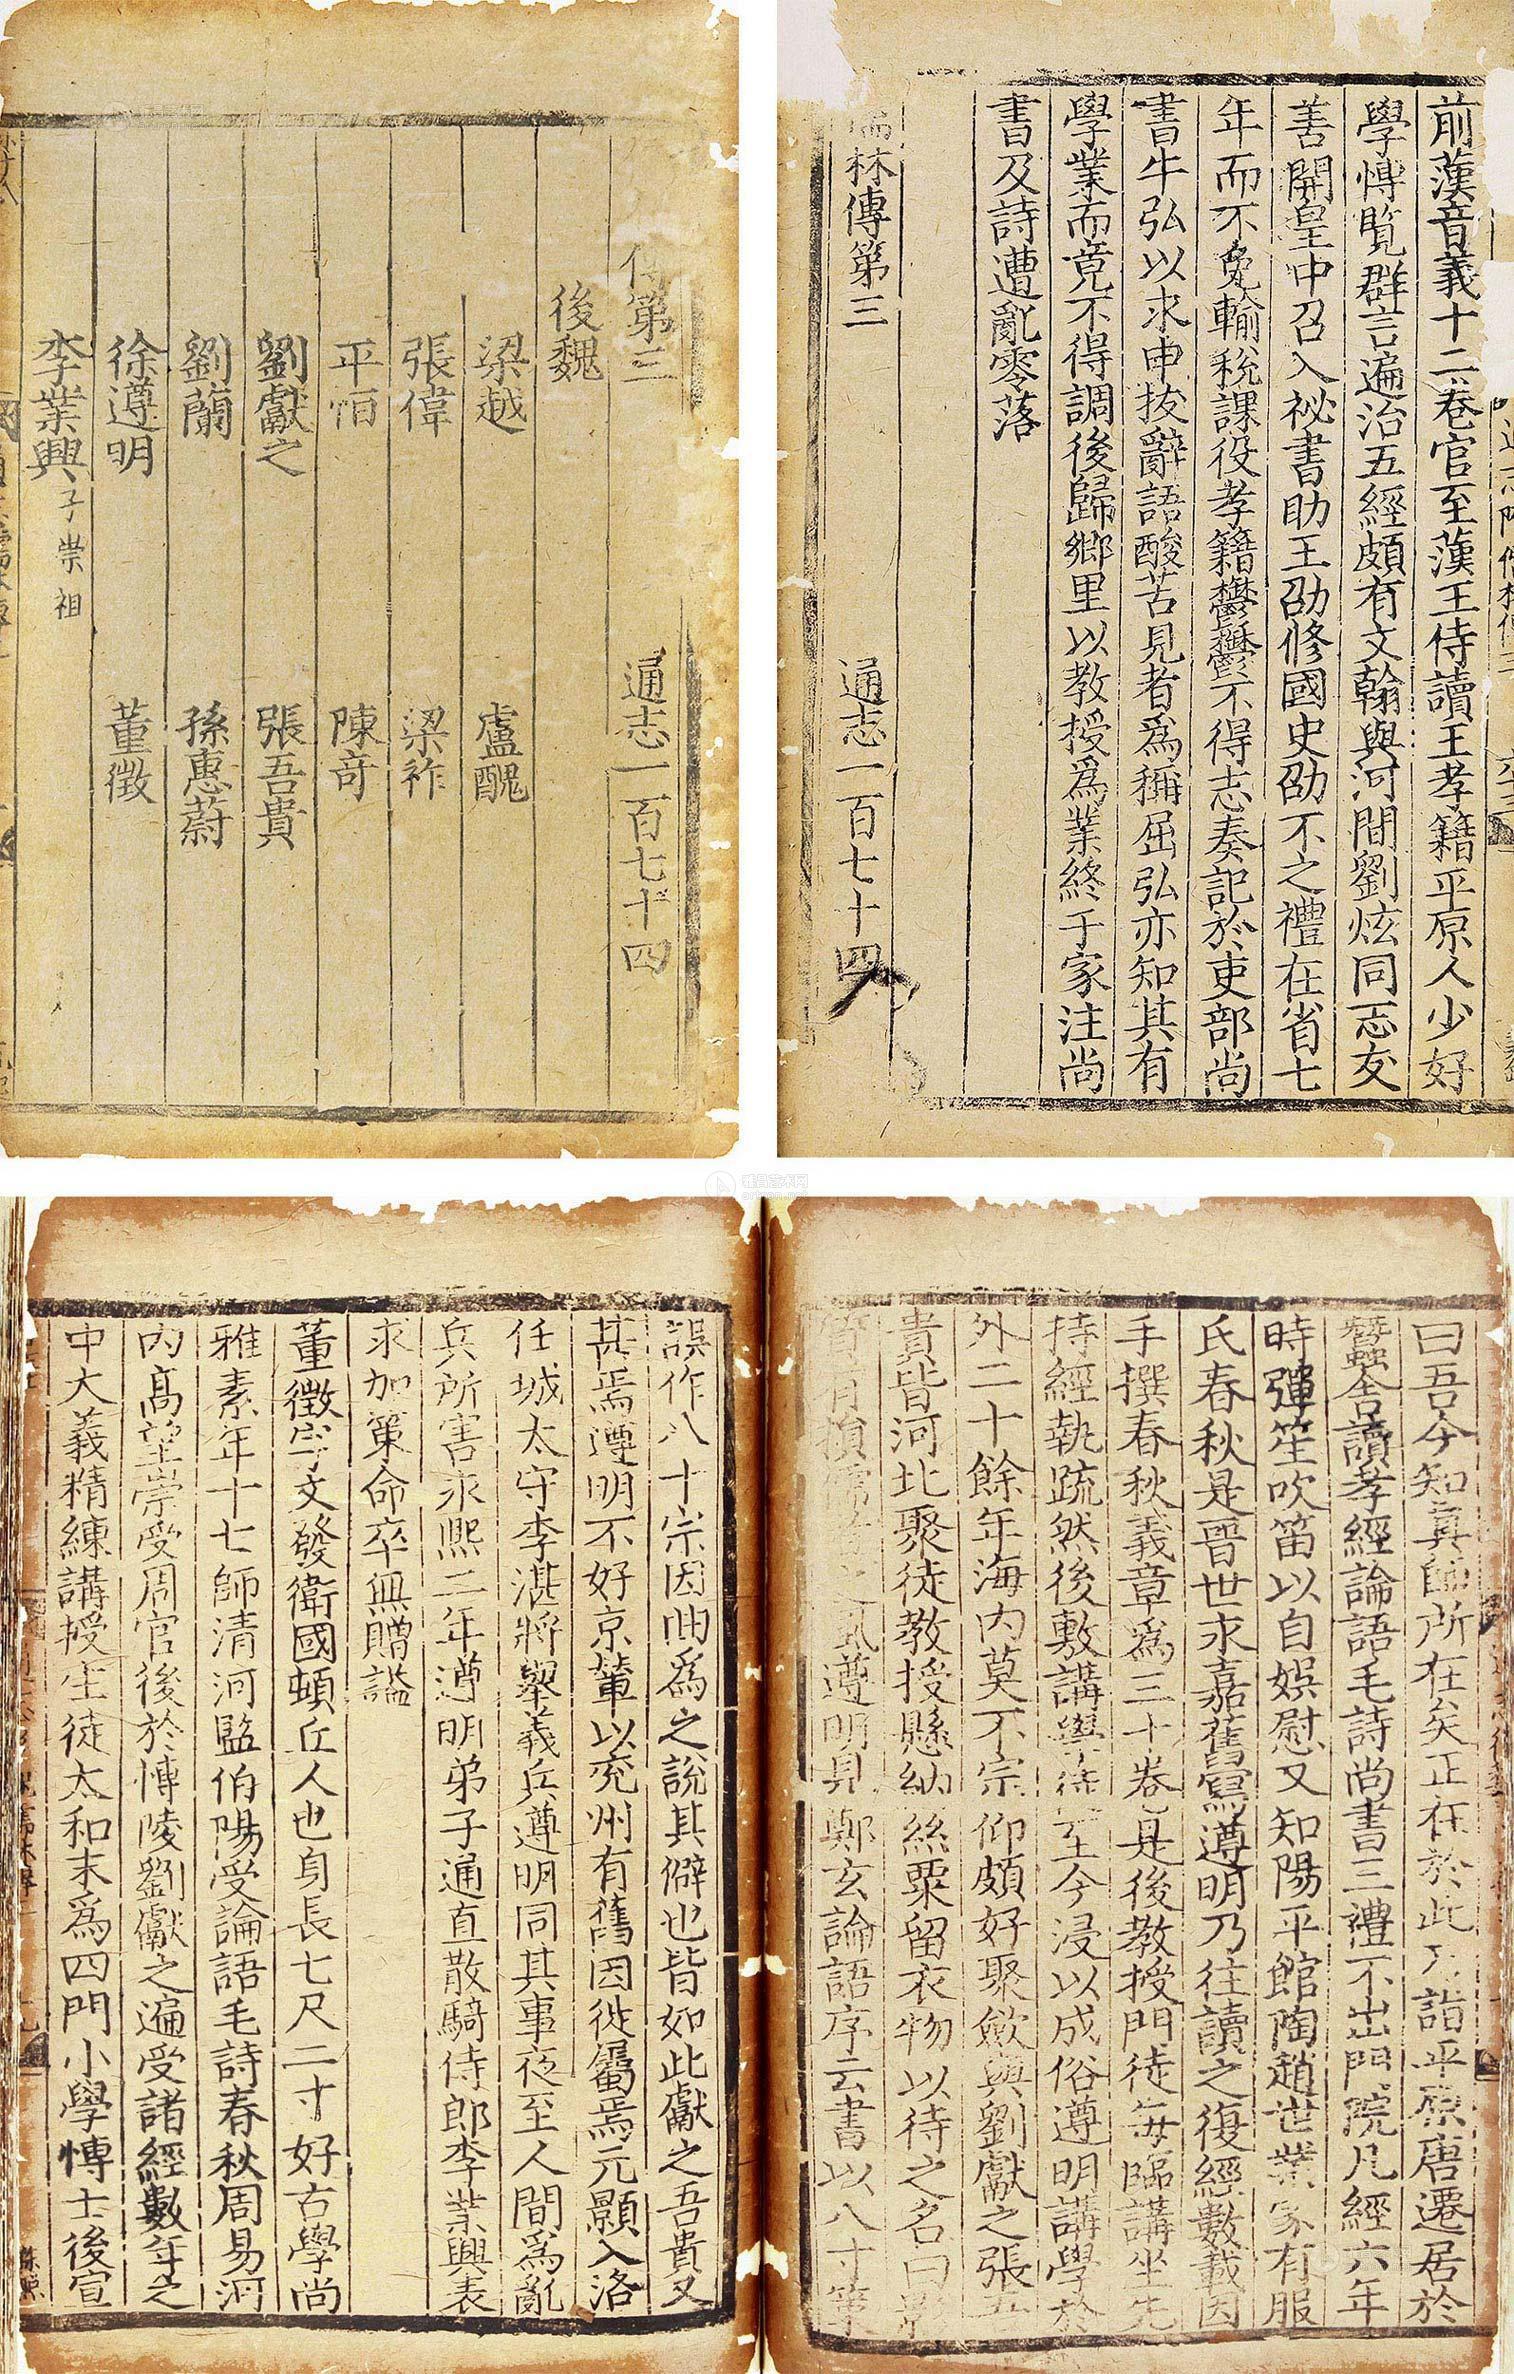 傳第三
通志一百七十四
後魏
梁越
盧醜
張偉
梁祚
平恒
陳奇
劉獻之
張吾貴
劉蘭
孫惠蔚
徐遵明
董徵
李業興子崇祖
前漢音義十二卷官至漢王侍讀王孝籍平原人少好
學愽覽群言遍治五經頗有文翰與河間劉炫同志友
善開皇中召入祕書助王劭修國史劭不之禮在省七
年而不免輸稅課役孝籍鬱鬱不得志奏記於吏部尚
書牛弘以求申拔辭語酸苦見者爲稱屈弘亦知其有
學業而竟不得調後歸鄉里以教授爲業終于家注尚
書及詩遭亂零落
儒林傳第三
通志一百七十四
曰吾今知眞師所在矣正在於此乃詣平原唐遷居於
蠶舍讀孝經論語毛詩尚書三禮不出門院凡經六年
時彈笙吹笛以自娛慰又知陽平館陶趙世業家有服
氏春秋是晉世永嘉舊寫遵明乃往讀之復經數載因
手撰春秋義章爲三十卷是後教授門徒每臨講坐先
持經執疏然後敷講學徒至今浸以成俗遵明講學於
外二十餘年海内莫不宗仰頗好聚斂與劉獻之張吾
貴皆河北聚徒教授懸納絲粟留衣物以待之名曰影
遵明見鄭玄論語序云書以八寸策
誤作八十宗因曲爲之說其僻也皆如此獻之吾貴又
甚焉遵明不好京輦以兖州有舊因徙屬焉元顥入洛
任城太守李湛將舉義兵遵明同其事夜至人間爲亂
兵所害永熙二年遵明弟子通直散騎侍郎李業興表
求加策命卒無贈謚
董徵字文發衛國頓丘人也身長七尺二寸好古學尚
雅素年十七師清河監伯陽受論語毛詩春秋周易河
内高望崇受周官後於愽陵劉獻之遍受諸經數年之
中大義精練講授生徒太和末爲四門小學愽士後宣